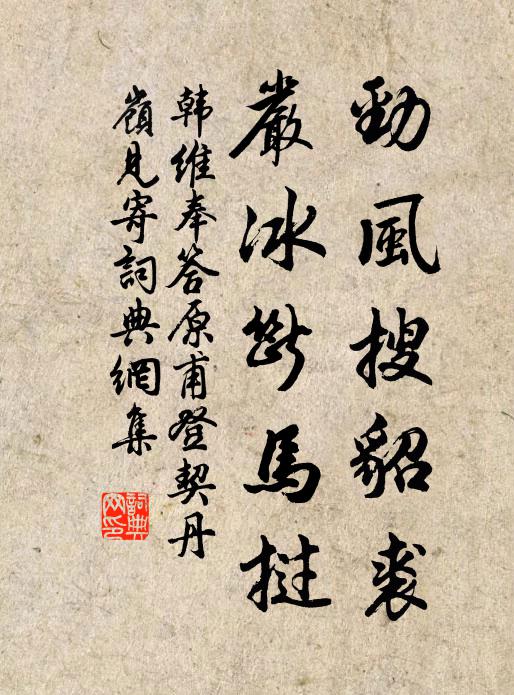 勁風搜貂裘
嚴冰斷馬撻
韩維奉答原甫登契丹
嶺見寄詞典網集
詞典网印